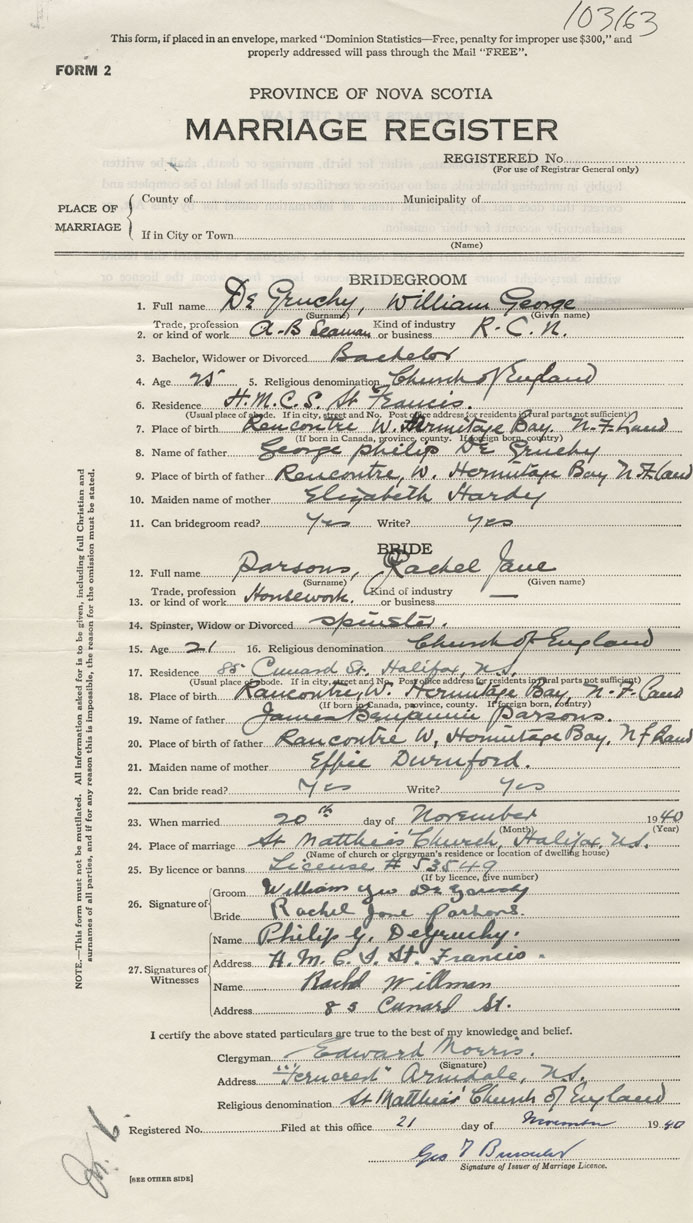 103163
This form, if placed in an envelope, marked "Dominion Statistics—Free, penalty for improper use $300," and
properly addressed will pass through the Mail "FREE".
FORM 2
PROVINCE OF NOVA SCOTIA
MARRIAGE REGISTER
REGISTERED No.
(For use of Registrar General only)
PLACE OF MARRIAGE
County of Municipality of
If in City or Town
(Name)
BRIDEGROOM
1. Full name De Gruchy, William George
(Surname) (Given name)
2. Trade, profession or kind of work A-B Seaman Kind of industry or business R.C.N.
3. Bachelor, Widower or Divorced Bachelor
4. Age 25 5. Religious denomination Church of England
6. Residence H.M.C.S. St Francis.
(Usual place of abode. If in city, street and No. Post office address for residents of rural parts not sufficient)
7. Place of birth Rencontre W. Hermitage Bay. N.F.Land
(If born in Canada, province, county. If foreign born, country)
8. Name of father George philip De Gruchy
9. Place of birth of father Rencontre, W. Hermitage Bay N F Land
10. Maiden name of mother Elizabeth Hardy
11. Can bridegroom read? Yes Write? Yes
BRIDE
12. Full name Parsons, Rachel Jane
(Surname) (Given name)
13. Trade, profession or kind of work Housework. Kind of industry or business —
14. Spinster, Widow or Divorced spinster.
15. Age 21 16. Religious denomination Church of England
17. Residence 85 Cunard St. Halifax, N.S.
(Usual place of abode. If in city, street and No. Post office address for residents of rural parts not sufficient)
18. Place of birth Rancontre, W. Hermitage Bay, N.F.Land
(If born in Canada, province, county. If foreign born, country)
19. Name of father James Benjamin Parsons.
20. Place of birth of father Rancontre W, Hermitage Bay, Nf Land
21. Maiden name of mother Effie Durnford.
22. Can bride read? Yes Write? Yes
23. When married 20th day of November 1940
(Month) (Year)
24. Place of marriage St Matthias Church, Halifax, N.S.
(Name of church or clergyman's residence or location of dwelling house)
25. By licence or banns License # 53549
(If by licence, give number)
26. Signature of
Groom William Geo De Gruchy
Bride Rachel Jane Parsons.
27. Signatures of Witnesses
Name Philip G. DeGruchy.
Address H.M.C.S. St. Francis.
Name Willman
Address 85 Cunard St.
I certify the above stated particulars are true to the best of my knowledge and belief.
Clergyman Edward Morris.
(Signature)
Address "Ferncrest" Armdale, N.S.
Religious denomination St Matthias' Church of England
Registered No. Filed at this office 21 day of November 1940
Geo
Signature of Issuer of Marriage Licence.
[SEE OTHER SIDE]
NOTE.—This form must not be mutilated. All Information asked for is to be given, including full Christian and
surnames of all parties, and if for any reason this is impossible, the reason for the omission must be stated.